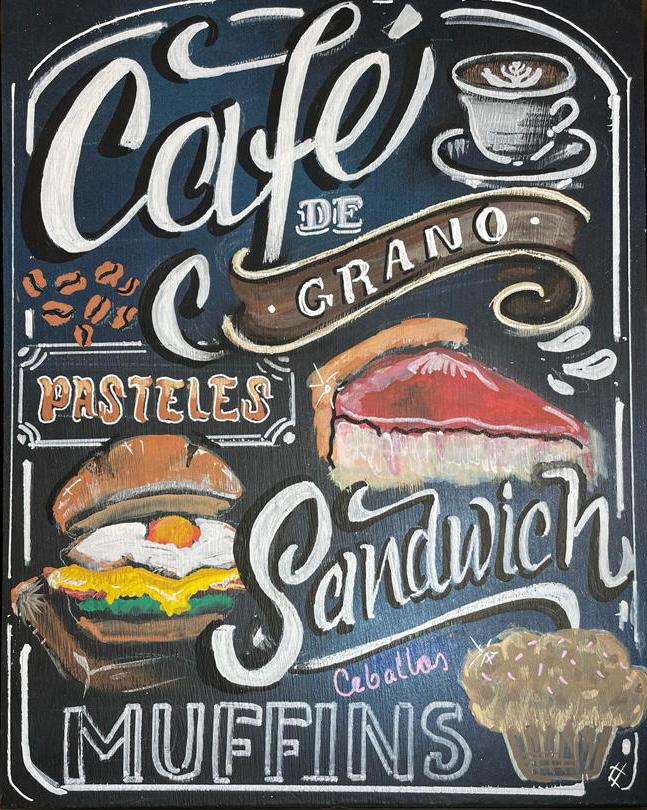 Café
DE
GRANO
PASTELES
Sandwich
Ceballos
MUFFINS